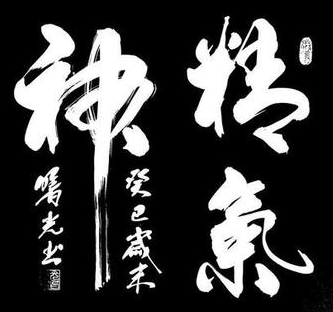 精氣
神
癸巳歲末
曙光书